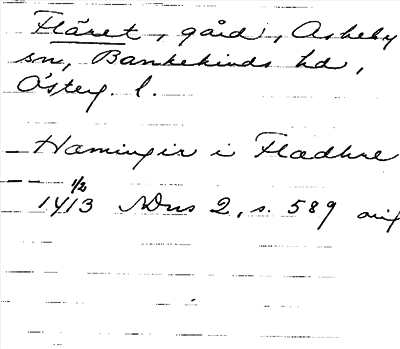 Fläret, gård, Askeby
sn, Bankekinds hd,
Österg. l.
Hamingir i Flædhre
1/2
1413 NDns 2, s. 589 orig